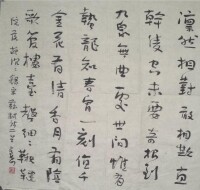 凛然相對敢相欺直
幹凌空未要奇根到
九泉無曲處世間惟有
蟄龍知春宵一刻值千
金花有清香月有陰
歌管樓臺聲細細鞦韆
院落夜沉沉